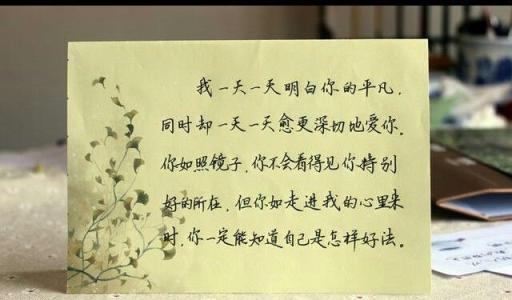 我一天一天明白你的平凡，
同时却一天一天愈更深切地爱你。
你如照镜子，你不会看得见你特别
好的所在，但你如走进我的心里来
时，你一定能知道自己是怎样好法。